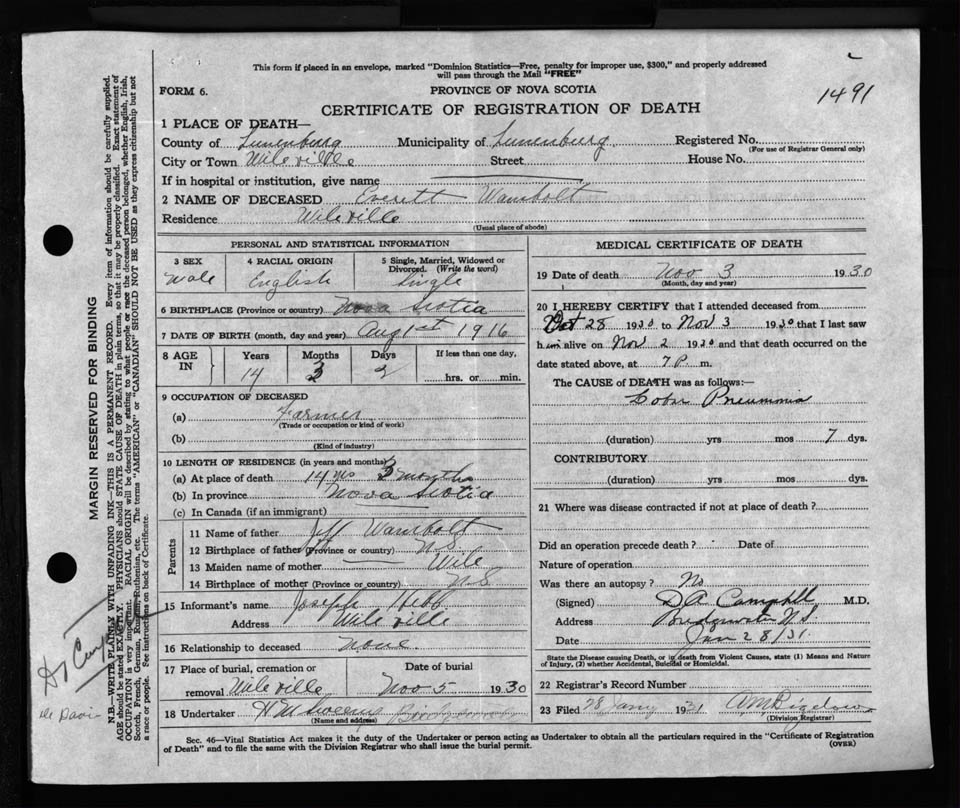 This form if placed in an envelope, marked "Dominion Statistics—Free, penalty for improper use, $300," and properly addressed
will pass through the Mail "FREE"
FORM 6.
PROVINCE OF NOVA SCOTIA
1491
CERTIFICATE OF REGISTRATION OF DEATH
1 PLACE OF DEATH—
County of Lunenburg Municipality of Lunenburg Registered No.
(For use of Registrar General only)
City or Town Wileville Street House No.
If in hospital or institution, give name
2 NAME OF DECEASED Everett Wambolt
Residence Wileville
(Usual place of abode)
PERSONAL AND STATISTICAL INFORMATION
3 SEX 4 RACIAL ORIGIN 5 Single, Married, Widowed or
Divorced. (Write the word)
Male English Single
6 BIRTHPLACE (Province or country) Nova Scotia
7 DATE OF BIRTH (month, day and year) Aug 1st 1916
8 AGE IN Years Months Days If less than one day,
14 3 2 hrs. or min.
9 OCCUPATION OF DECEASED
(a) Farmer
(Trade or occupation or kind of work)
(b)
(Kind of industry)
10 LENGTH OF RESIDENCE (in years and months)
(a) At place of death 14 3 months
(b) In province Nova Scotia
(c) In Canada (if an immigrant)
Parents
11 Name of father Jeff Wambolt
12 Birthplace of father (Province or country) N S
13 Maiden name of mother Wile
14 Birthplace of mother (Province or country) N S
15 Informant's name Joseph Hebb
Address Wileville
16 Relationship to deceased none.
17 Place of burial, cremation or Date of burial
removal Wileville Nov 5 1930
18 Undertaker H M
(Name and address)
MEDICAL CERTIFICATE OF DEATH
19 Date of death Nov 3 1930
(Month, day and year)
20 I HEREBY CERTIFY that I attended deceased from
Oct 28 1930 to Nov 3 1930 that I last saw
him alive on Nov 2 1930 and that death occurred on the
date stated above, at 7 P. m.
The CAUSE of DEATH was as follows:—
Lobar Pneumonia
(duration) yrs mos 7 dys.
CONTRIBUTORY
(duration) yrs mos dys.
21 Where was disease contracted if not at place of death?
Did an operation precede death? Date of
Nature of operation
Was there an autopsy? No
(Signed) D A Campbell M.D.
Address Bridgewater N.S.
Date Jan 28/31.
State the Disease causing Death, or in death from Violent Causes, state (1) Means and Nature
of Injury, (2) whether Accidental, Suicidal or Homicidal.
22 Registrar's Record Number
23 Filed 28 Jany 1931
(Division Registrar)
Sec. 46—Vital Statistics Act makes it the duty of the Undertaker or person acting as Undertaker to obtain all the particulars required in the "Certificate of Registration
of Death" and to file the same with the Division Registrar who shall issue the burial permit.
(OVER)
MARGIN RESERVED FOR BINDING
N.B.—WRITE PLAINLY WITH UNFADING INK—THIS IS A PERMANENT RECORD. Every item of information should be carefully supplied.
AGE should be stated EXACTLY. PHYSICIANS should STATE CAUSE OF DEATH in plain terms, so that it may be properly classified. Exact statement of
OCCUPATION is very important. RACIAL ORIGIN will be described by stating to what people or race the deceased person belonged, whether English, Irish,
Scotch, French, German, Russian, Ruthenian, etc. The terms "AMERICAN" or "CANADIAN" SHOULD NOT BE USED as they express citizenship but not
a race or people. See instructions on back of Certificate.